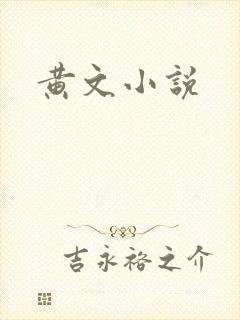 黄文小説
吉永裕之介